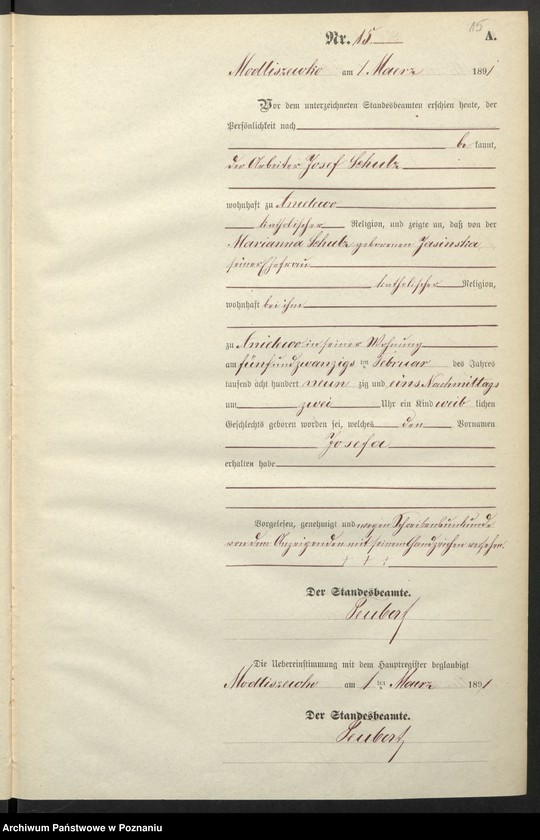 15
Nr. 15 A.
Modliszewko am 1 Maerz 1891
Vor dem unterzeichneten Standesbeamten erschien heute, der
Persönlichkeit nach
be kannt,
der Arbeiter Josef Schulz
wohnhaft zu
katholischer Religion, und zeigte an, daß von der
Marianna Schulz geborenen Jasinska
seiner Ehefrau
katholischer Religion,
wohnhaft bei ihm
zu in seiner Wohnung
am fünfundzwanzigsten Februar des Jahres
tausend acht hundert neun zig und eins Nachmittags
um zwei Uhr ein Kind weib lichen
Geschlechts geboren worden sei, welches den Vornamen
Josefa
erhalten habe
Vorgelesen, genehmigt und wegen Schreibenunkunde
von dem Anzeigenden mit seinem Handzeichen versehen.
† † †
Der Standesbeamte.
Seubert
Die Uebereinstimmung mit dem Hauptregister beglaubigt
Modliszewko am 1 ten Maerz 1891
Der Standesbeamte.
Seubert
Archiwum Państwowe w Poznaniu